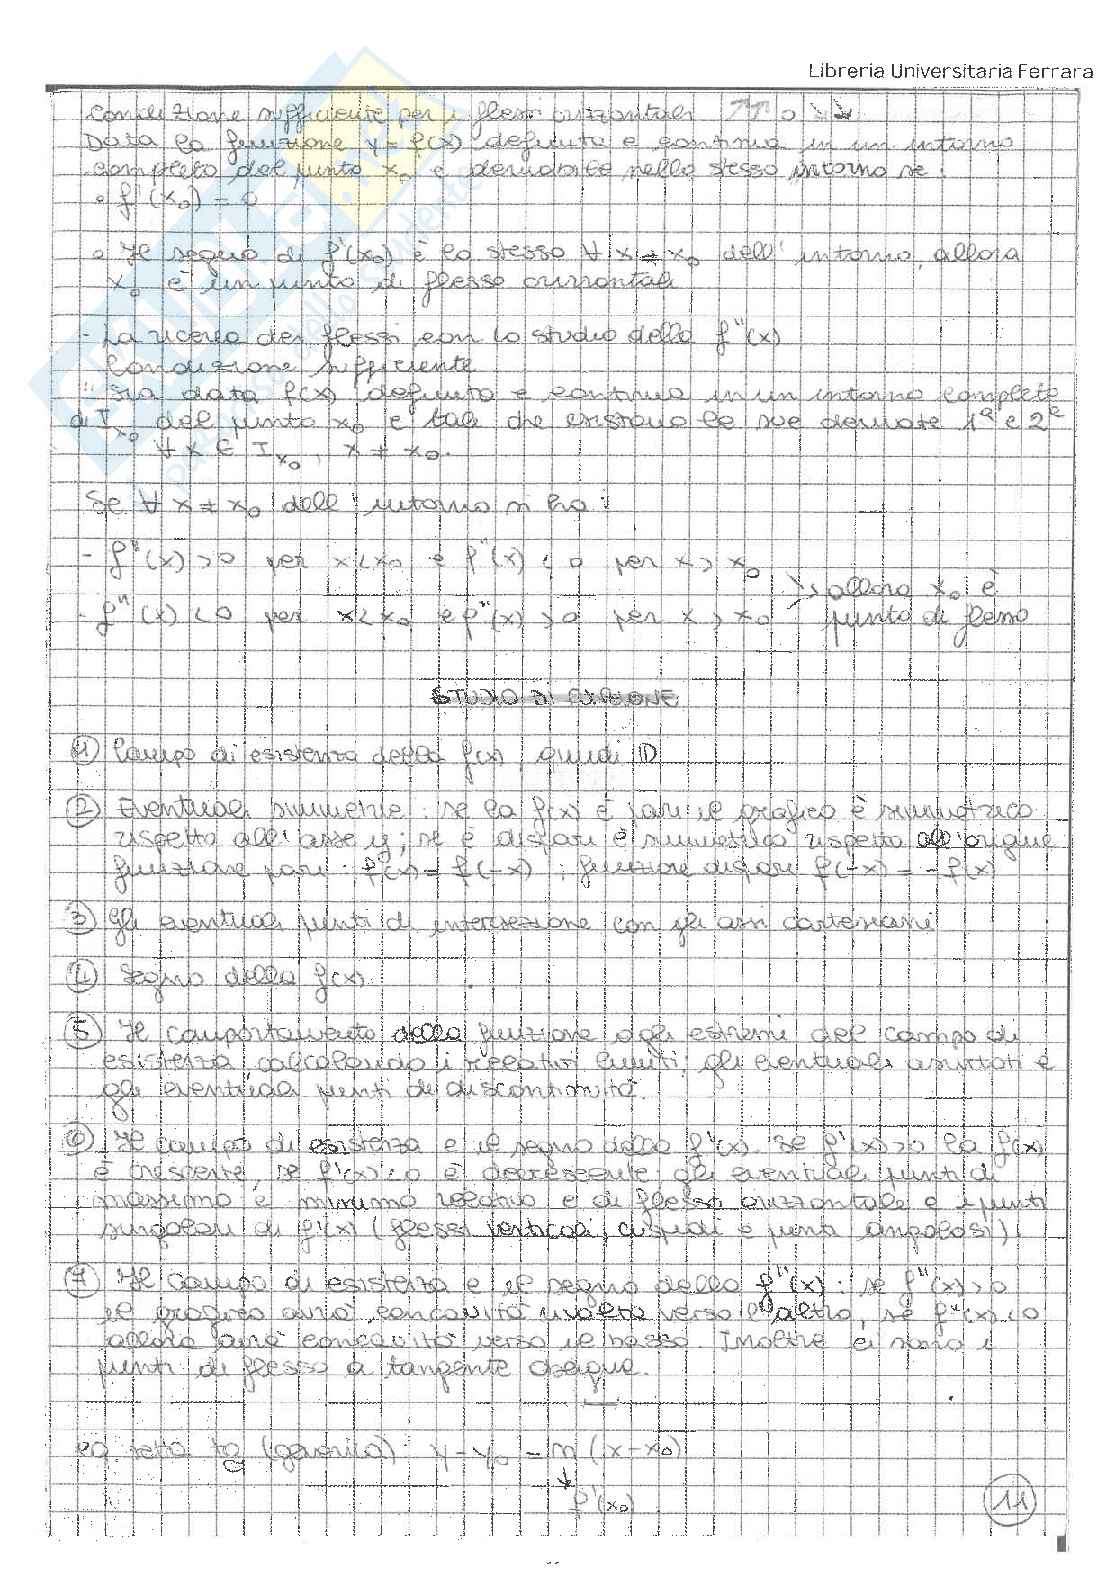 Libreria Universitaria Ferrara
Condizione sufficiente per i flessi orizzontali ↑↑ o ↘↘
Data la funzione y = f(x) definita e continua in un intorno
completo del punto x₀ e derivabile nello stesso intorno se:
• f'(x₀) = 0
• Il segno di f'(x₀) è lo stesso ∀ x ≠ x₀ dell'intorno, allora
x₀ è un punto di flesso orizzontale
- La ricerca dei flessi con lo studio della f''(x)
Condizione sufficiente
"Sia data f(x) definita e continua in un intorno completo
di I x₀ del punto x₀ e tale che esistano le sue derivate 1ª e 2ª
∀ x ∈ I x₀, x ≠ x₀.
Se ∀ x ≠ x₀ dell'intorno si ha:
- f''(x) > 0 per x < x₀ e f''(x) < 0 per x > x₀
allora x₀ è
- f''(x) < 0 per x < x₀ e f''(x) > 0 per x > x₀ punto di flesso
STUDIO DI FUNZIONE
1 Campo di esistenza della f(x), quindi D
2 Eventuali simmetrie: se la f(x) è pari il grafico è simmetrico
rispetto all'asse y; se è dispari è simmetrico rispetto all'origine
funzione pari: f(x) = f(-x); funzione dispari f(-x) = -f(x)
3 Gli eventuali punti di intersezione con gli assi cartesiani
4 Segno della f(x)
5 Il comportamento della funzione agli estremi del campo di
esistenza calcolando i relativi limiti, gli eventuali asintoti e
gli eventuali punti di discontinuità.
6 Il campo di esistenza e il segno della f'(x). Se f'(x)>0 la f(x)
è crescente, se f'(x)<0 è decrescente, gli eventuali punti di
massimo e minimo relativo e di flesso orizzontale e i punti
singolari di f'(x) (flessi verticali, cuspidi e punti angolosi).
7 Il campo di esistenza e il segno della f''(x): se f''(x)>0
il grafico avrà concavità rivolta verso l'alto, se f''(x)<0
allora avrà concavità verso il basso. Inoltre ci sono i
punti di flesso a tangente obliqua.
eq. retta tg (generica): y - y₀ = m (x - x₀)
↓
f'(x₀)
11